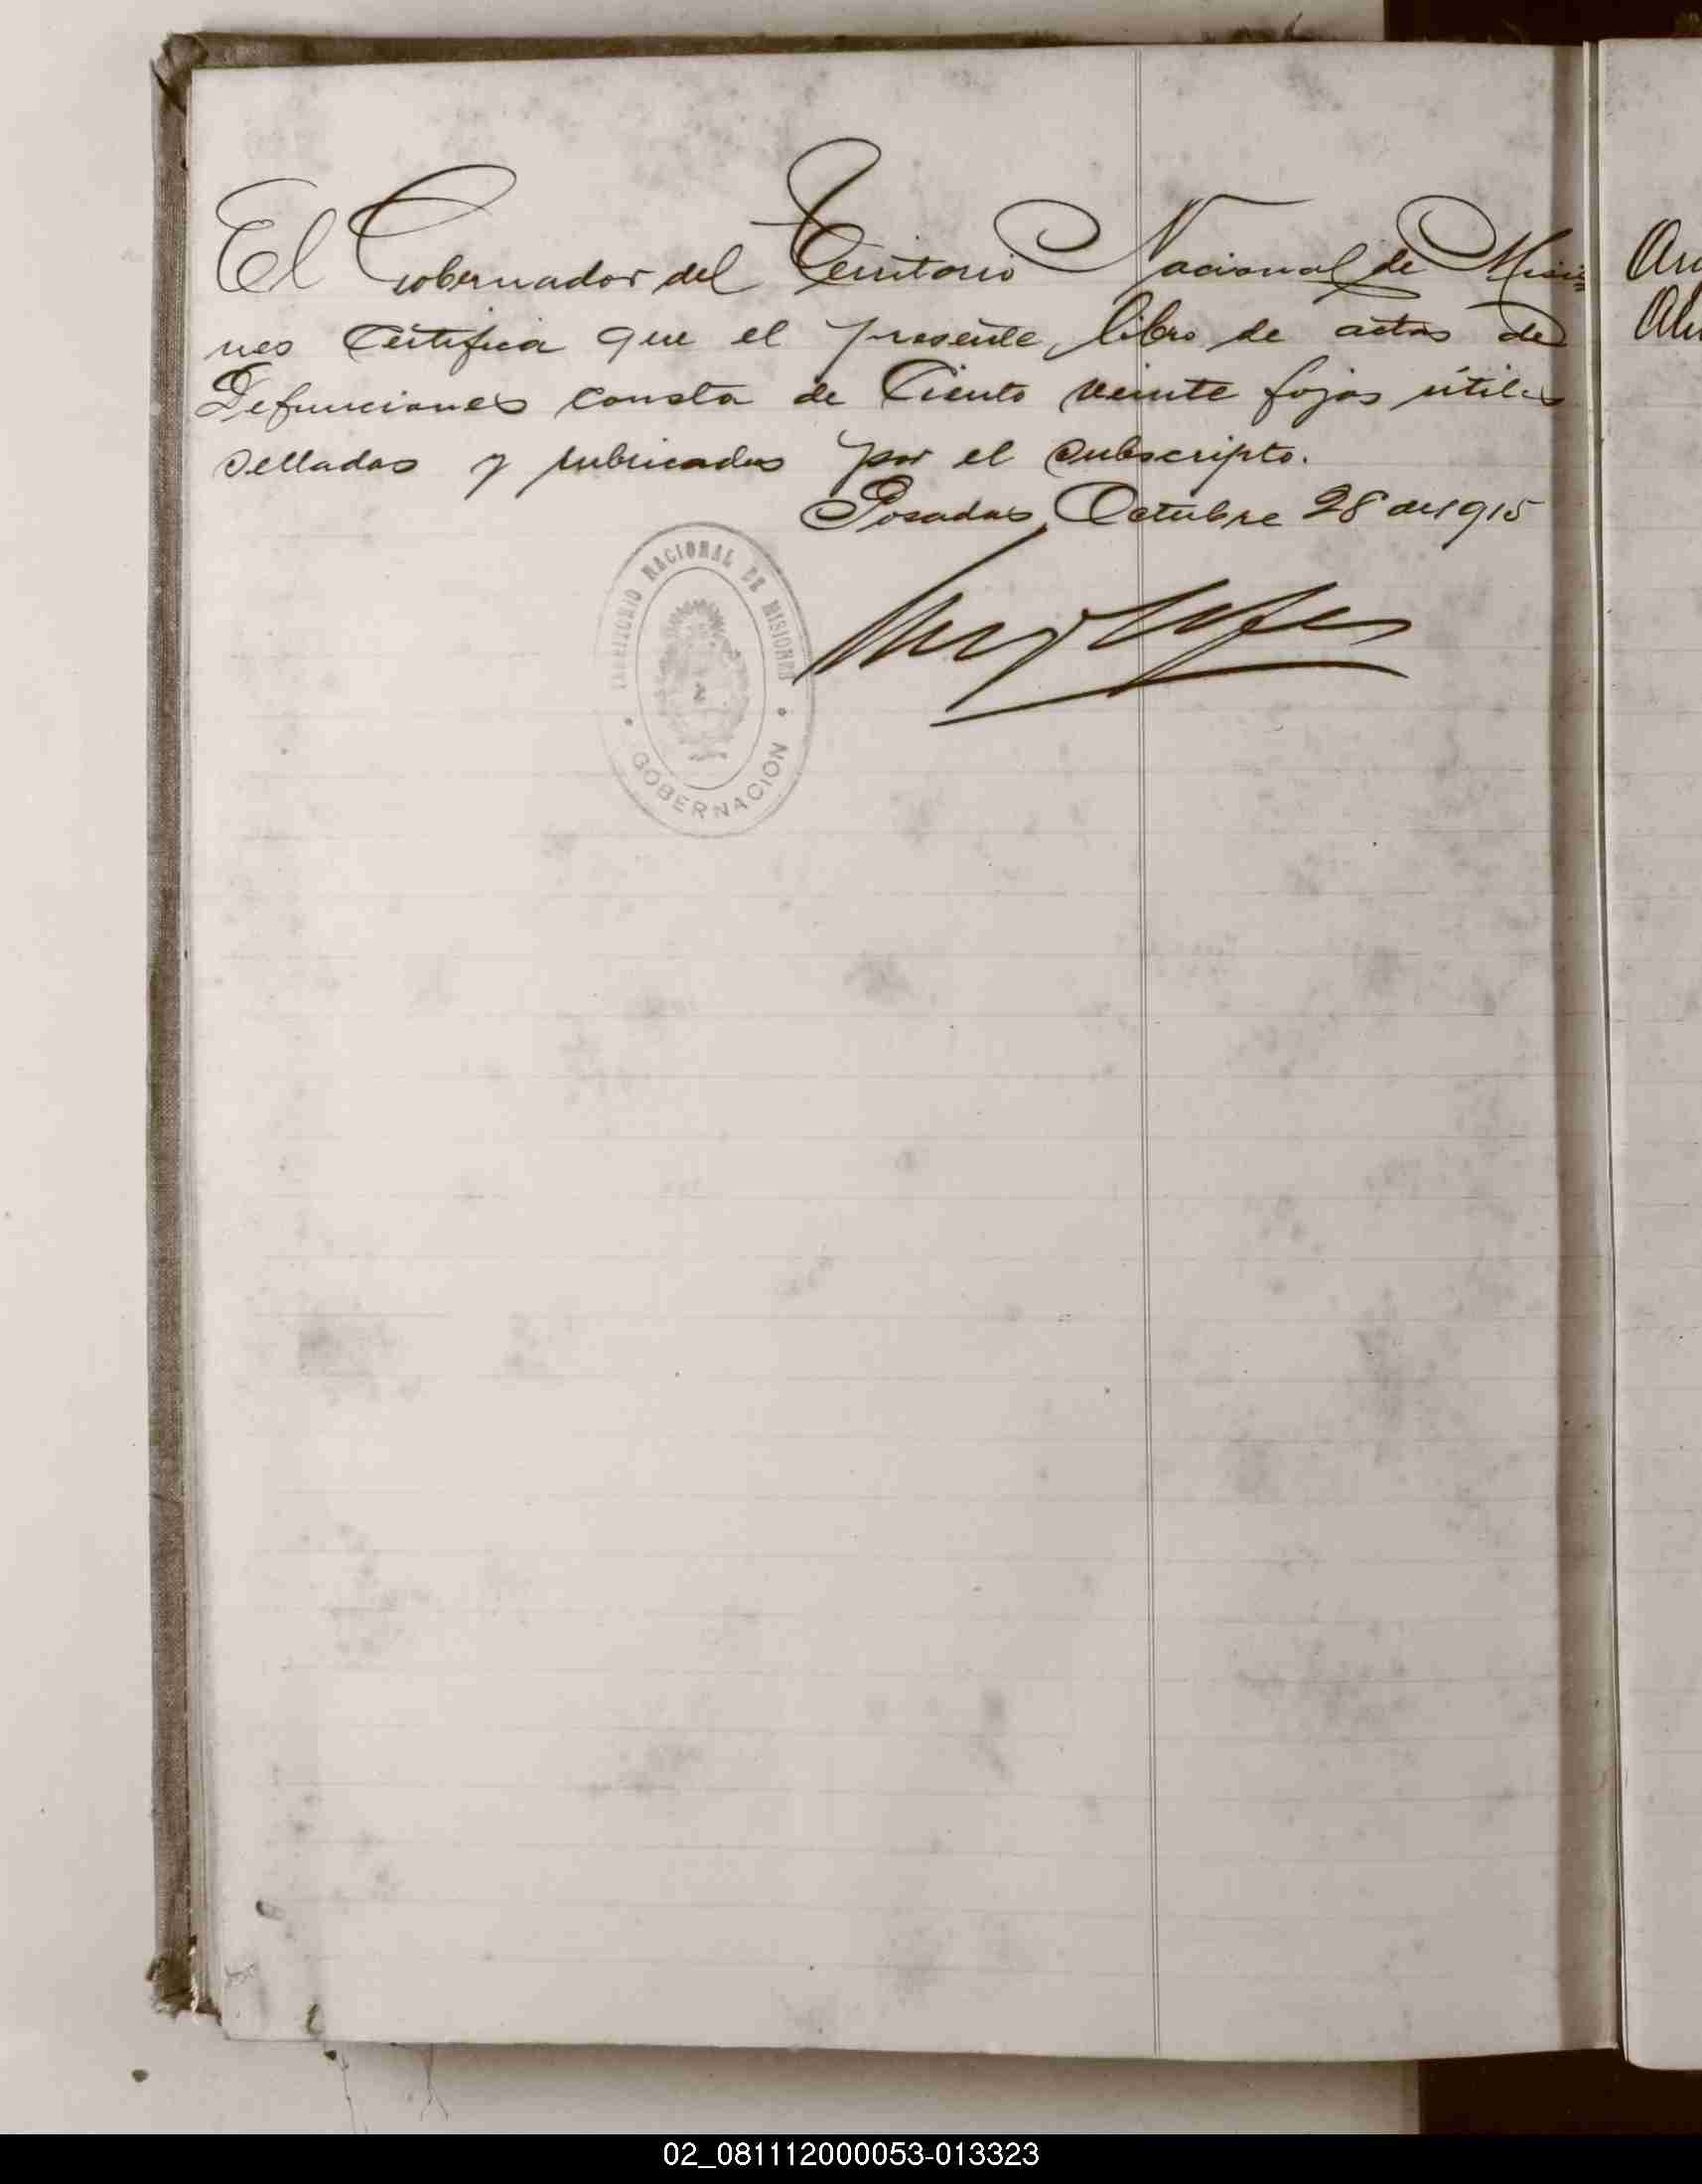 El Gobernador del Territorio Nacional de Misio=
nes Certifica que el presente, libro de actas de
Defunciones consta de Ciento veinte fojas útiles
selladas y rubricadas por el subscripto.
Posadas, Octubre 28 de 1915
TERRITORIO NACIONAL DE MISIONES
• GOBERNACION •
02_081112000053-013323